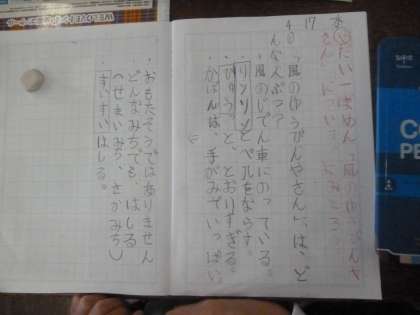 17
だい一ばめん「風のゆうびんや
さん」について、よみとろう
40「風のゆうびんやさん」は、ど
んな人ぶつ?
・風のじてん車にのっている。
・リンリンとベルをならす。
・ひゅうっと、とおりすぎる。
・かばんは、手がみでいっぱい。
・おもたそうではありません
・どんなみちでも、はしる
(せまいみち、さかみち)
・すいすいはしる。